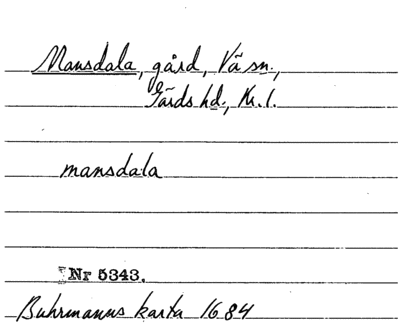 Mansdala, gård, Vä sn.,
Gärds hd., Kr. l.
mansdala
Nr 5343.
Buhrmanns karta 1684